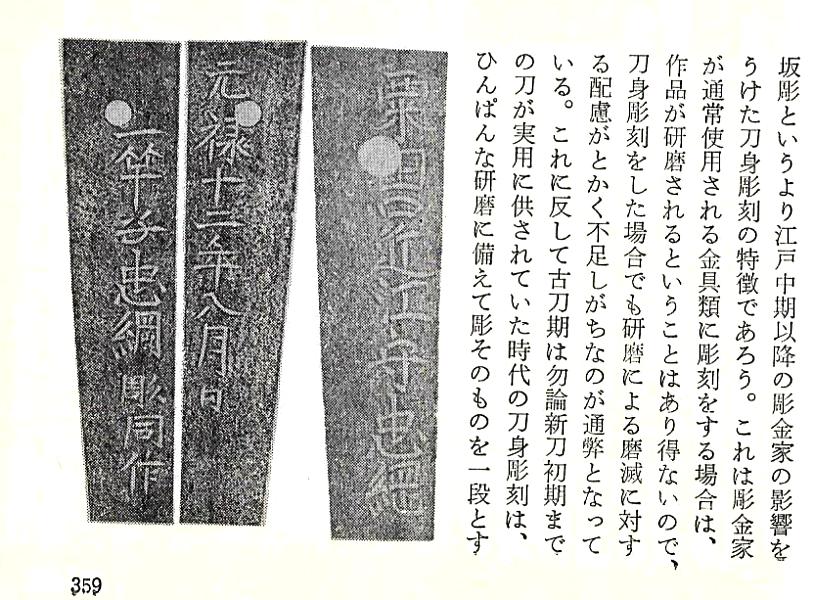 坂彫というより江戸中期以降の彫金家の影響を
うけた刀身彫刻の特徴であろう。これは彫金家
が通常使用される金具類に彫刻をする場合は、
作品が研磨されるということはあり得ないので、
刀身彫刻をした場合でも研磨による磨滅に対す
る配慮がとかく不足しがちなのが通弊となって
いる。これに反して古刀期は勿論新刀初期まで
の刀が実用に供されていた時代の刀身彫刻は、
ひんぱんな研磨に備えて彫そのものを一段とす
粟田口近江守忠綱
元禄十二年八月日
一竿子忠綱彫同作
359